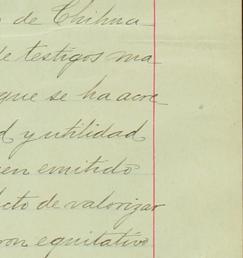 de Chihua
de testigos ma
que se ha acre
d y utilidad
en emitido
cto de valorizar
ron equitativo